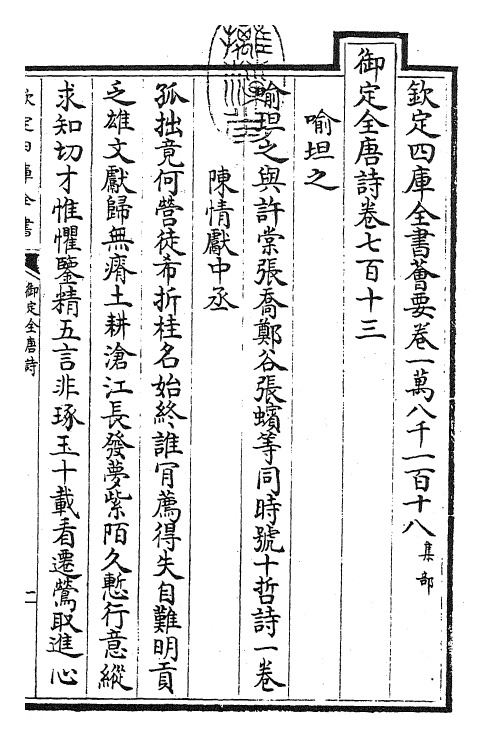 欽定四庫全書薈要卷一萬八千一百十八 集部
御定全唐詩卷七百十三
喻坦之
喻坦之與許棠張喬鄭谷張蠙等同時號十哲詩一卷
陳情獻中丞
孤拙竟何營徒希折桂名始終誰肎薦得失自難明貢
乏雄文獻歸無瘠土耕滄江長發夢紫陌久慙行意縱
求知切才惟懼鑒精五言非琢玉十載看遷鶯取進心
欽定四庫全書 御定全唐詩